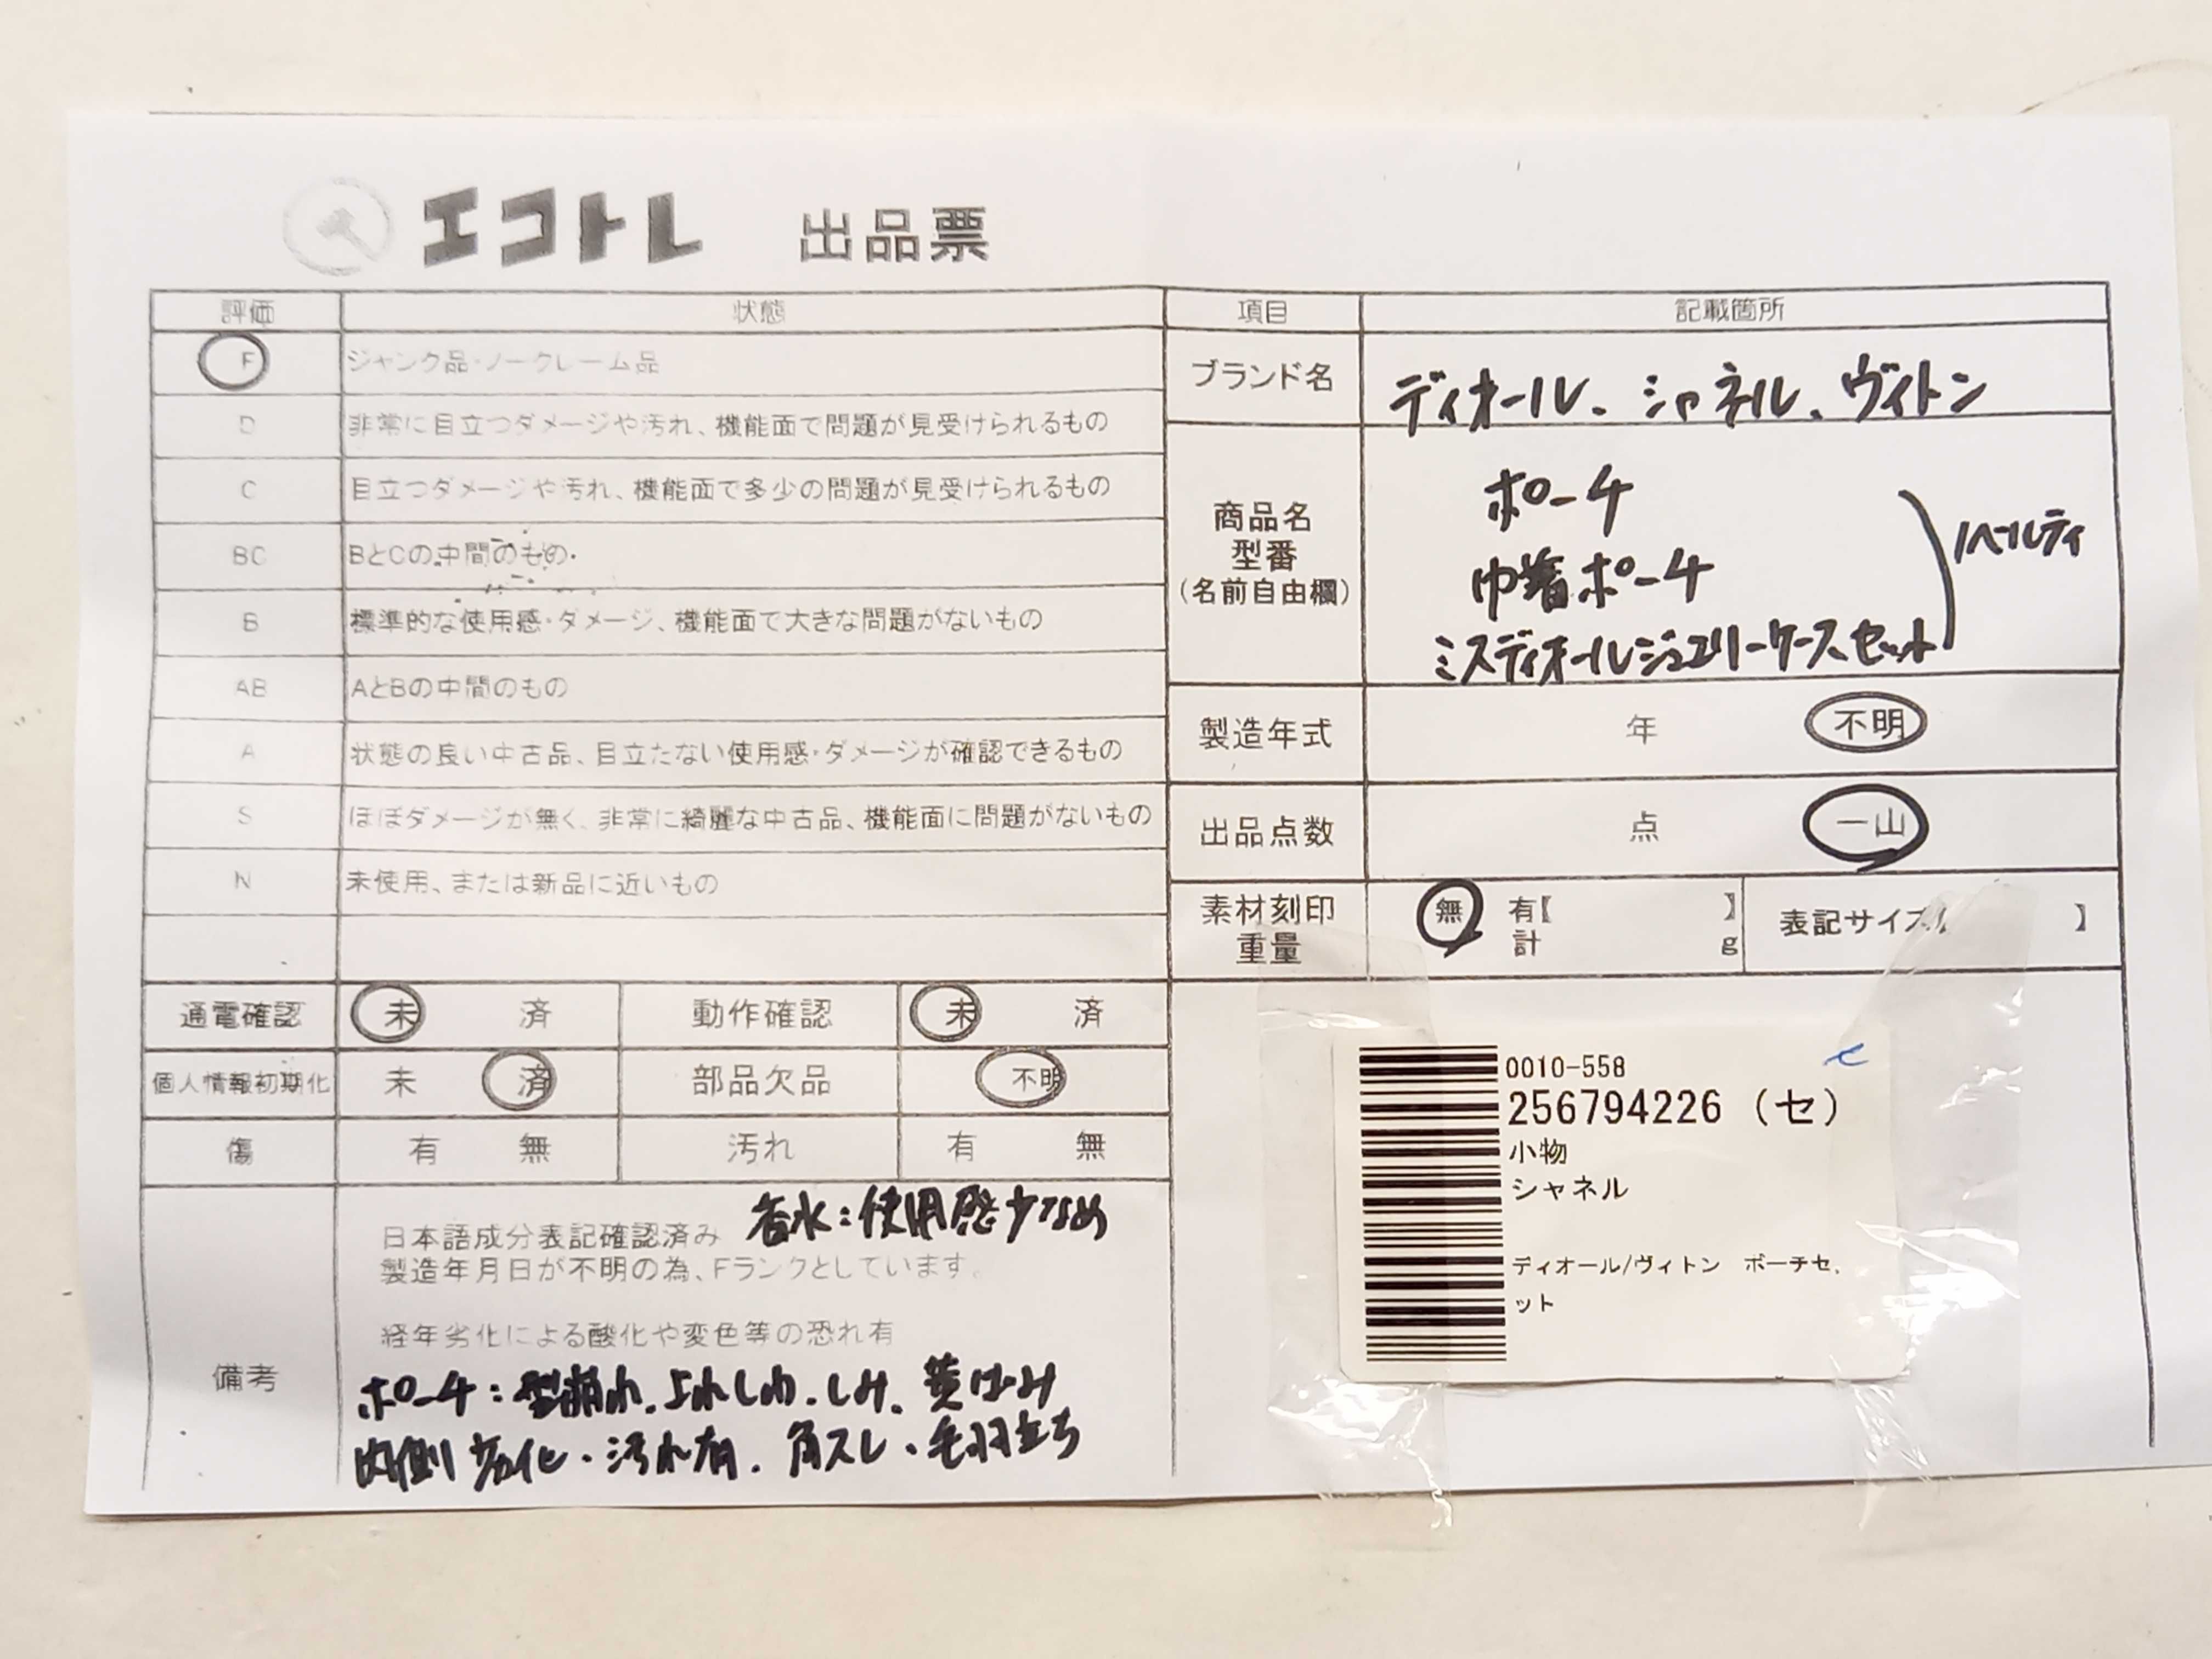 エコトレ 出品票
評価 状態
F ジャンク品・ノークレーム品
D 非常に目立つダメージや汚れ、機能面で問題が見受けられるもの
C 目立つダメージや汚れ、機能面で多少の問題が見受けられるもの
BC BとCの中間のもの
B 標準的な使用感・ダメージ、機能面で大きな問題がないもの
AB AとBの中間のもの
A 状態の良い中古品、目立たない使用感・ダメージが確認できるもの
S ほぼダメージが無く、非常に綺麗な中古品、機能面に問題がないもの
N 未使用、または新品に近いもの
通電確認 未 済 動作確認 未 済
個人情報初期化 未 済 部品欠品 不明
傷 有 無 汚れ 有 無
備考
香水:使用感少なめ
日本語成分表記確認済み
製造年月日が不明の為、Fランクとしています。
経年劣化による酸化や変色等の恐れ有
ポーチ:型崩れ、よれしわ、しみ、黄ばみ
内側劣化・汚れ有、角スレ・毛羽立ち
項目 記載箇所
ブランド名 ディオール、シャネル、ヴィトン
商品名
型番
(名前自由欄)
ポーチ
巾着ポーチ
ミスディオールジュエリーケースセット
ノベルティ
製造年式 年 不明
出品点数 点 一山
素材刻印 無 有【 】
重量 計 g
表記サイズ【 】
0010-558
256794226 (セ)
小物
シャネル
ディオール/ヴィトン ポーチセ
ット